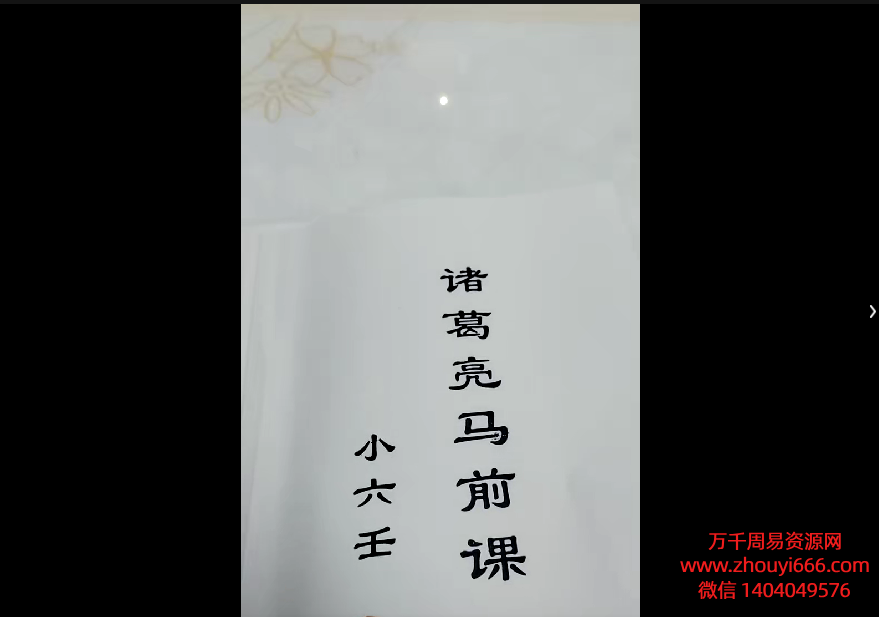 诸葛亮马前课
小六壬
万千周易资源网
www.zhouyi666.com
微信 1404049576